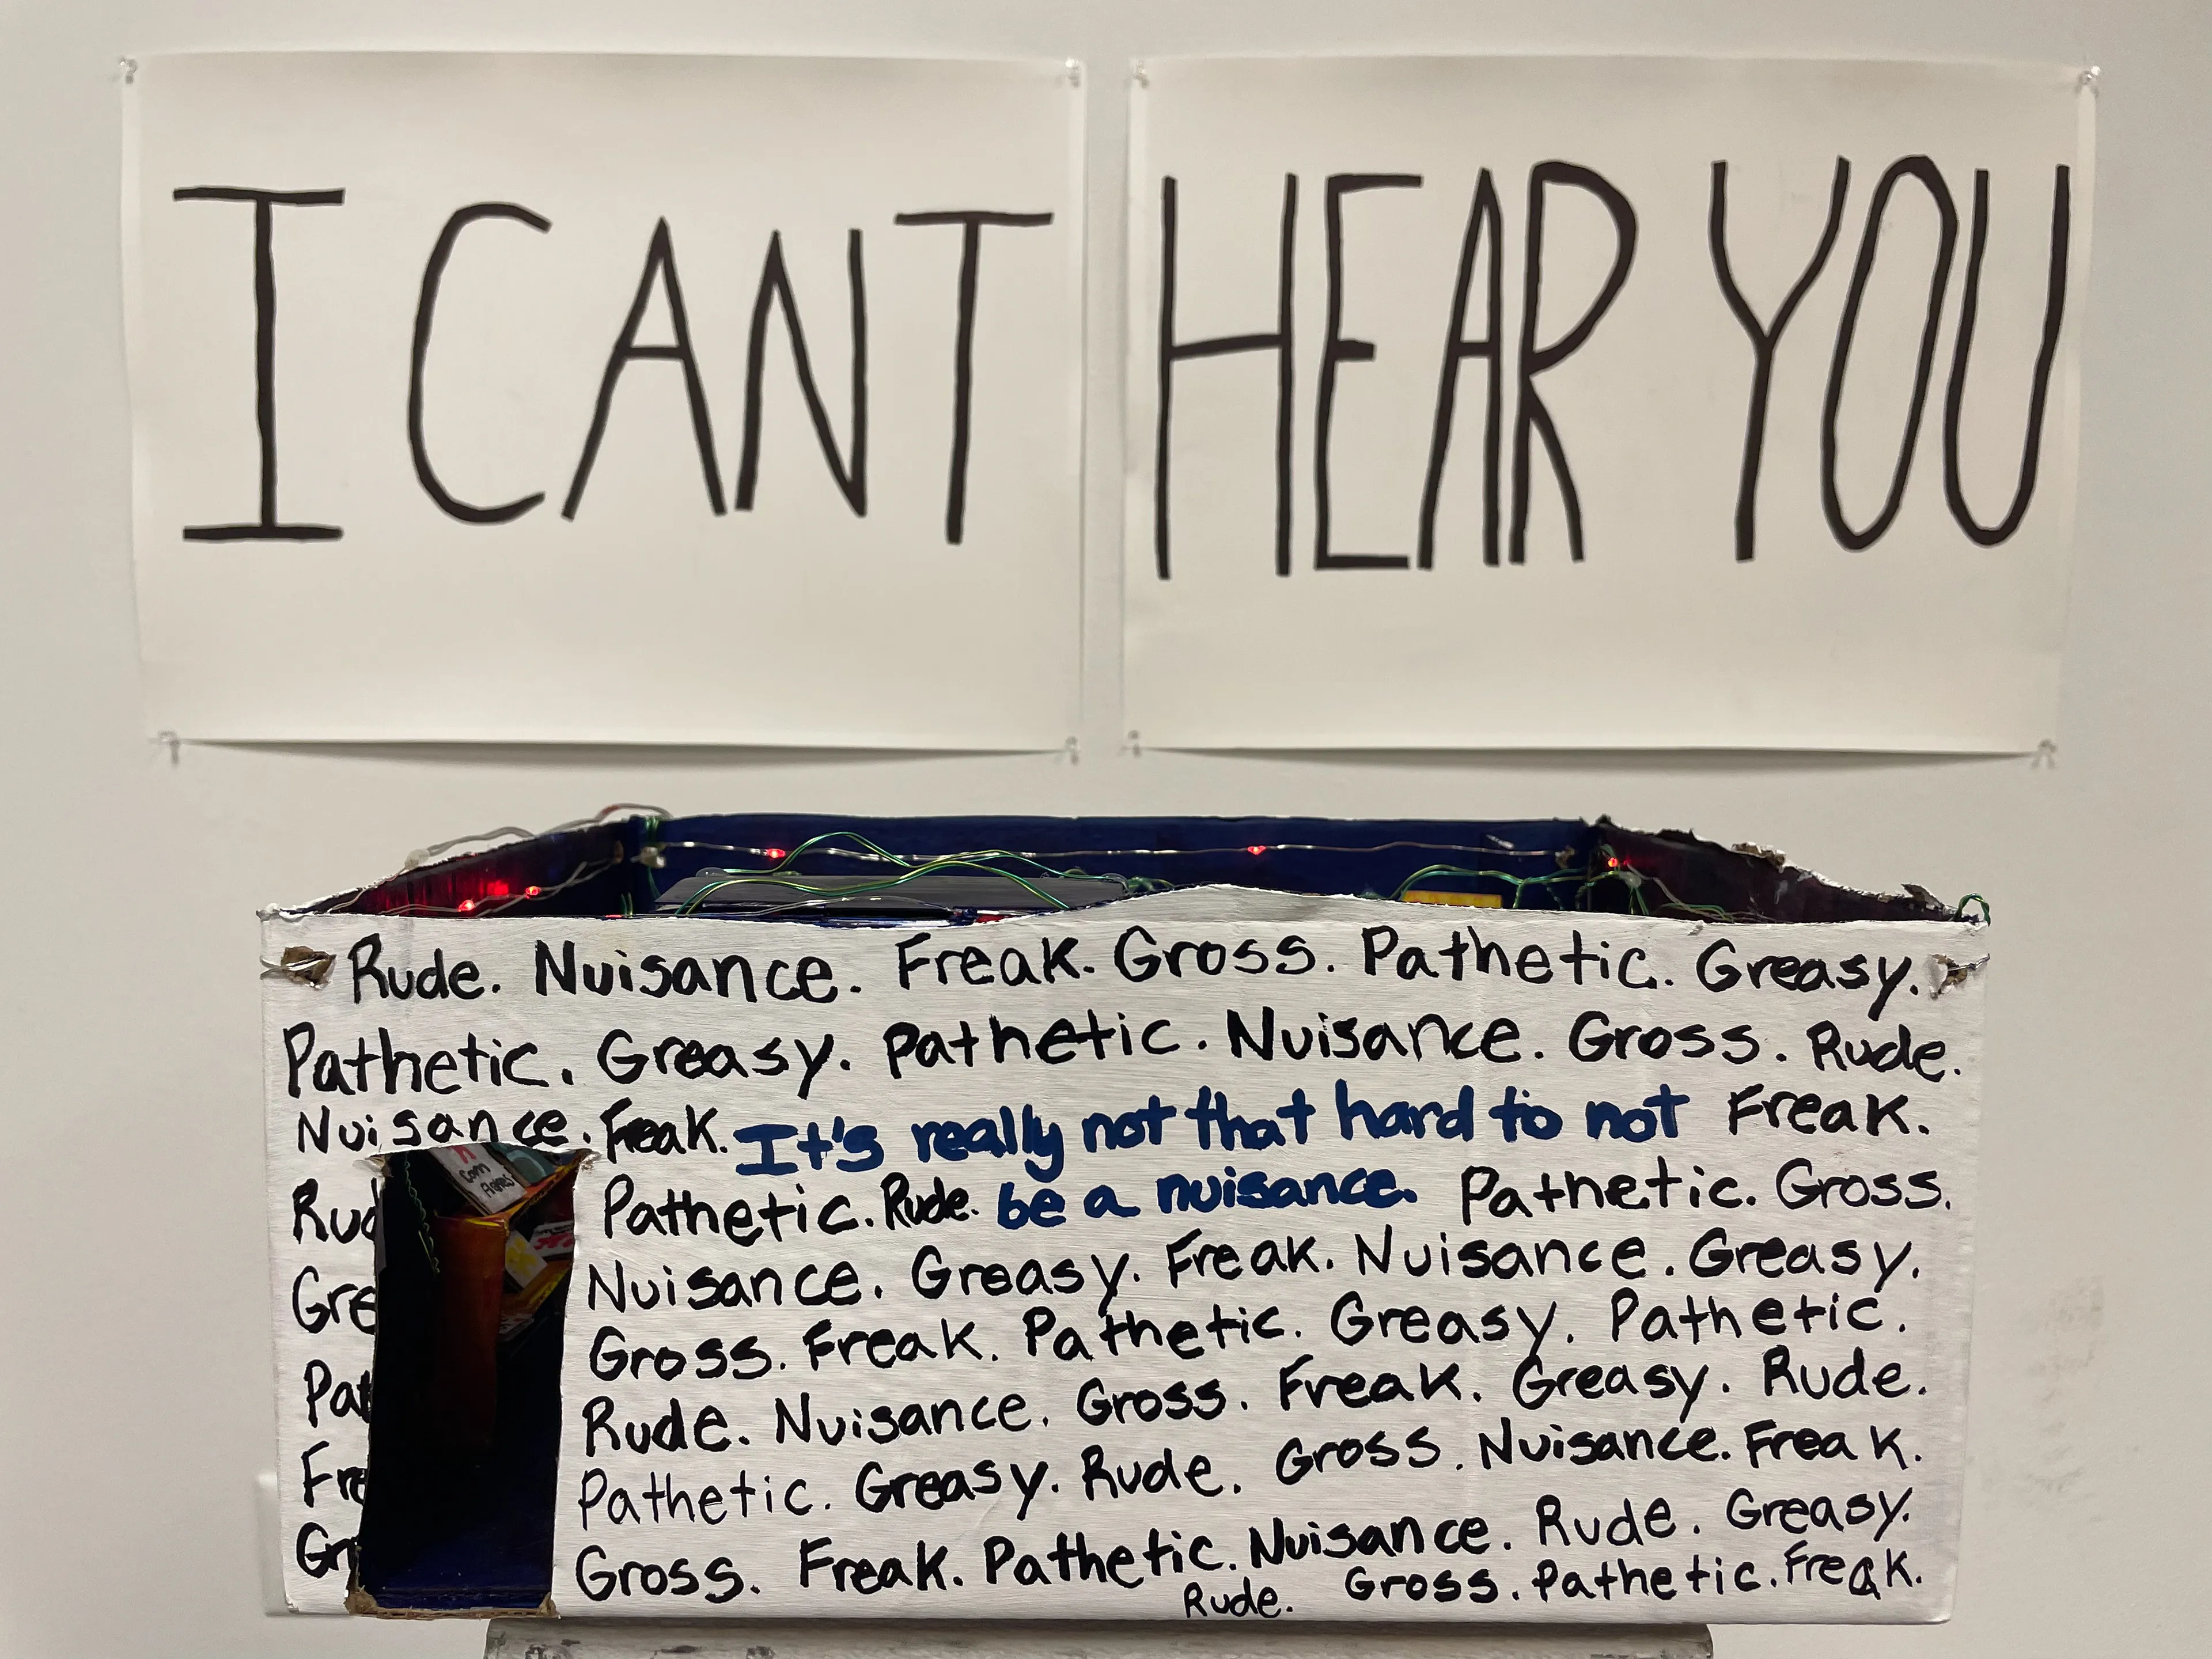 I CANT
HEAR YOU
Rude. Nuisance. Freak. Gross. Pathetic. Greasy.
Pathetic. Greasy. Pathetic. Nuisance. Gross. Rude.
Nuisance. Freak. It's really not that hard to not Freak.
Rud Pathetic. Rude. be a nuisance. Pathetic. Gross.
Gre Nuisance. Greasy. Freak. Nuisance. Greasy.
Gross. Freak. Pathetic. Greasy. Pathetic.
Pat Rude. Nuisance. Gross. Freak. Greasy. Rude.
Fre Pathetic. Greasy. Rude. Gross. Nuisance. Freak.
Gr Gross. Freak. Pathetic. Nuisance. Rude. Greasy.
Rude. Gross. Pathetic. Freak.